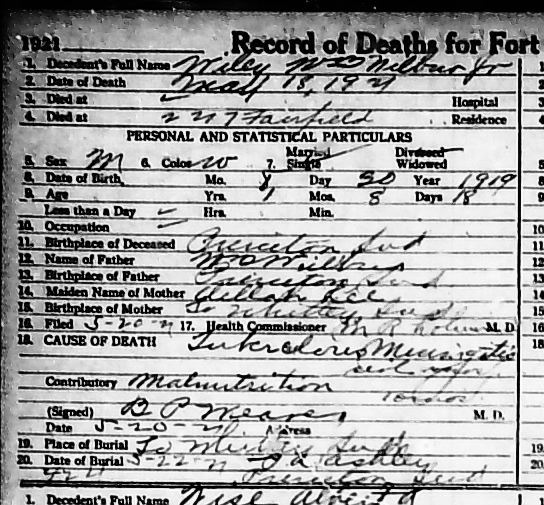 1921 Record of Deaths for Fort
1. Decedent's Full Name Wiley Wm Wilbur Jr
2. Date of Death May 18, 1921
3. Died at ✓ Hospital
4. Died at 227 Fairfield Residence
PERSONAL AND STATISTICAL PARTICULARS
5. Sex M 6. Color W 7. Married Single Divorced Widowed
8. Date of Birth, Mo. 8 Day 30 Year 1919
9. Age Yrs. 1 Mos. 8 Days 18
Less than a Day ✓ Hrs. Min.
10. Occupation ✓
11. Birthplace of Deceased Princeton Ind
12. Name of Father Wm Wilbur
13. Birthplace of Father Princeton Ind
14. Maiden Name of Mother Lee
15. Birthplace of Mother So Whitley Ind
16. Filed 5-20-21 17. Health Commissioner M. D.
18. CAUSE OF DEATH Tuberculous
Contributory Malnutrition
(Signed) B P Weaver M. D.
Date 5-20-21 Address
19. Place of Burial So Whitley Ind
20. Date of Burial 5-22-21 J A Ashley
924 Princeton Ind
1. Decedent's Full Name Wise